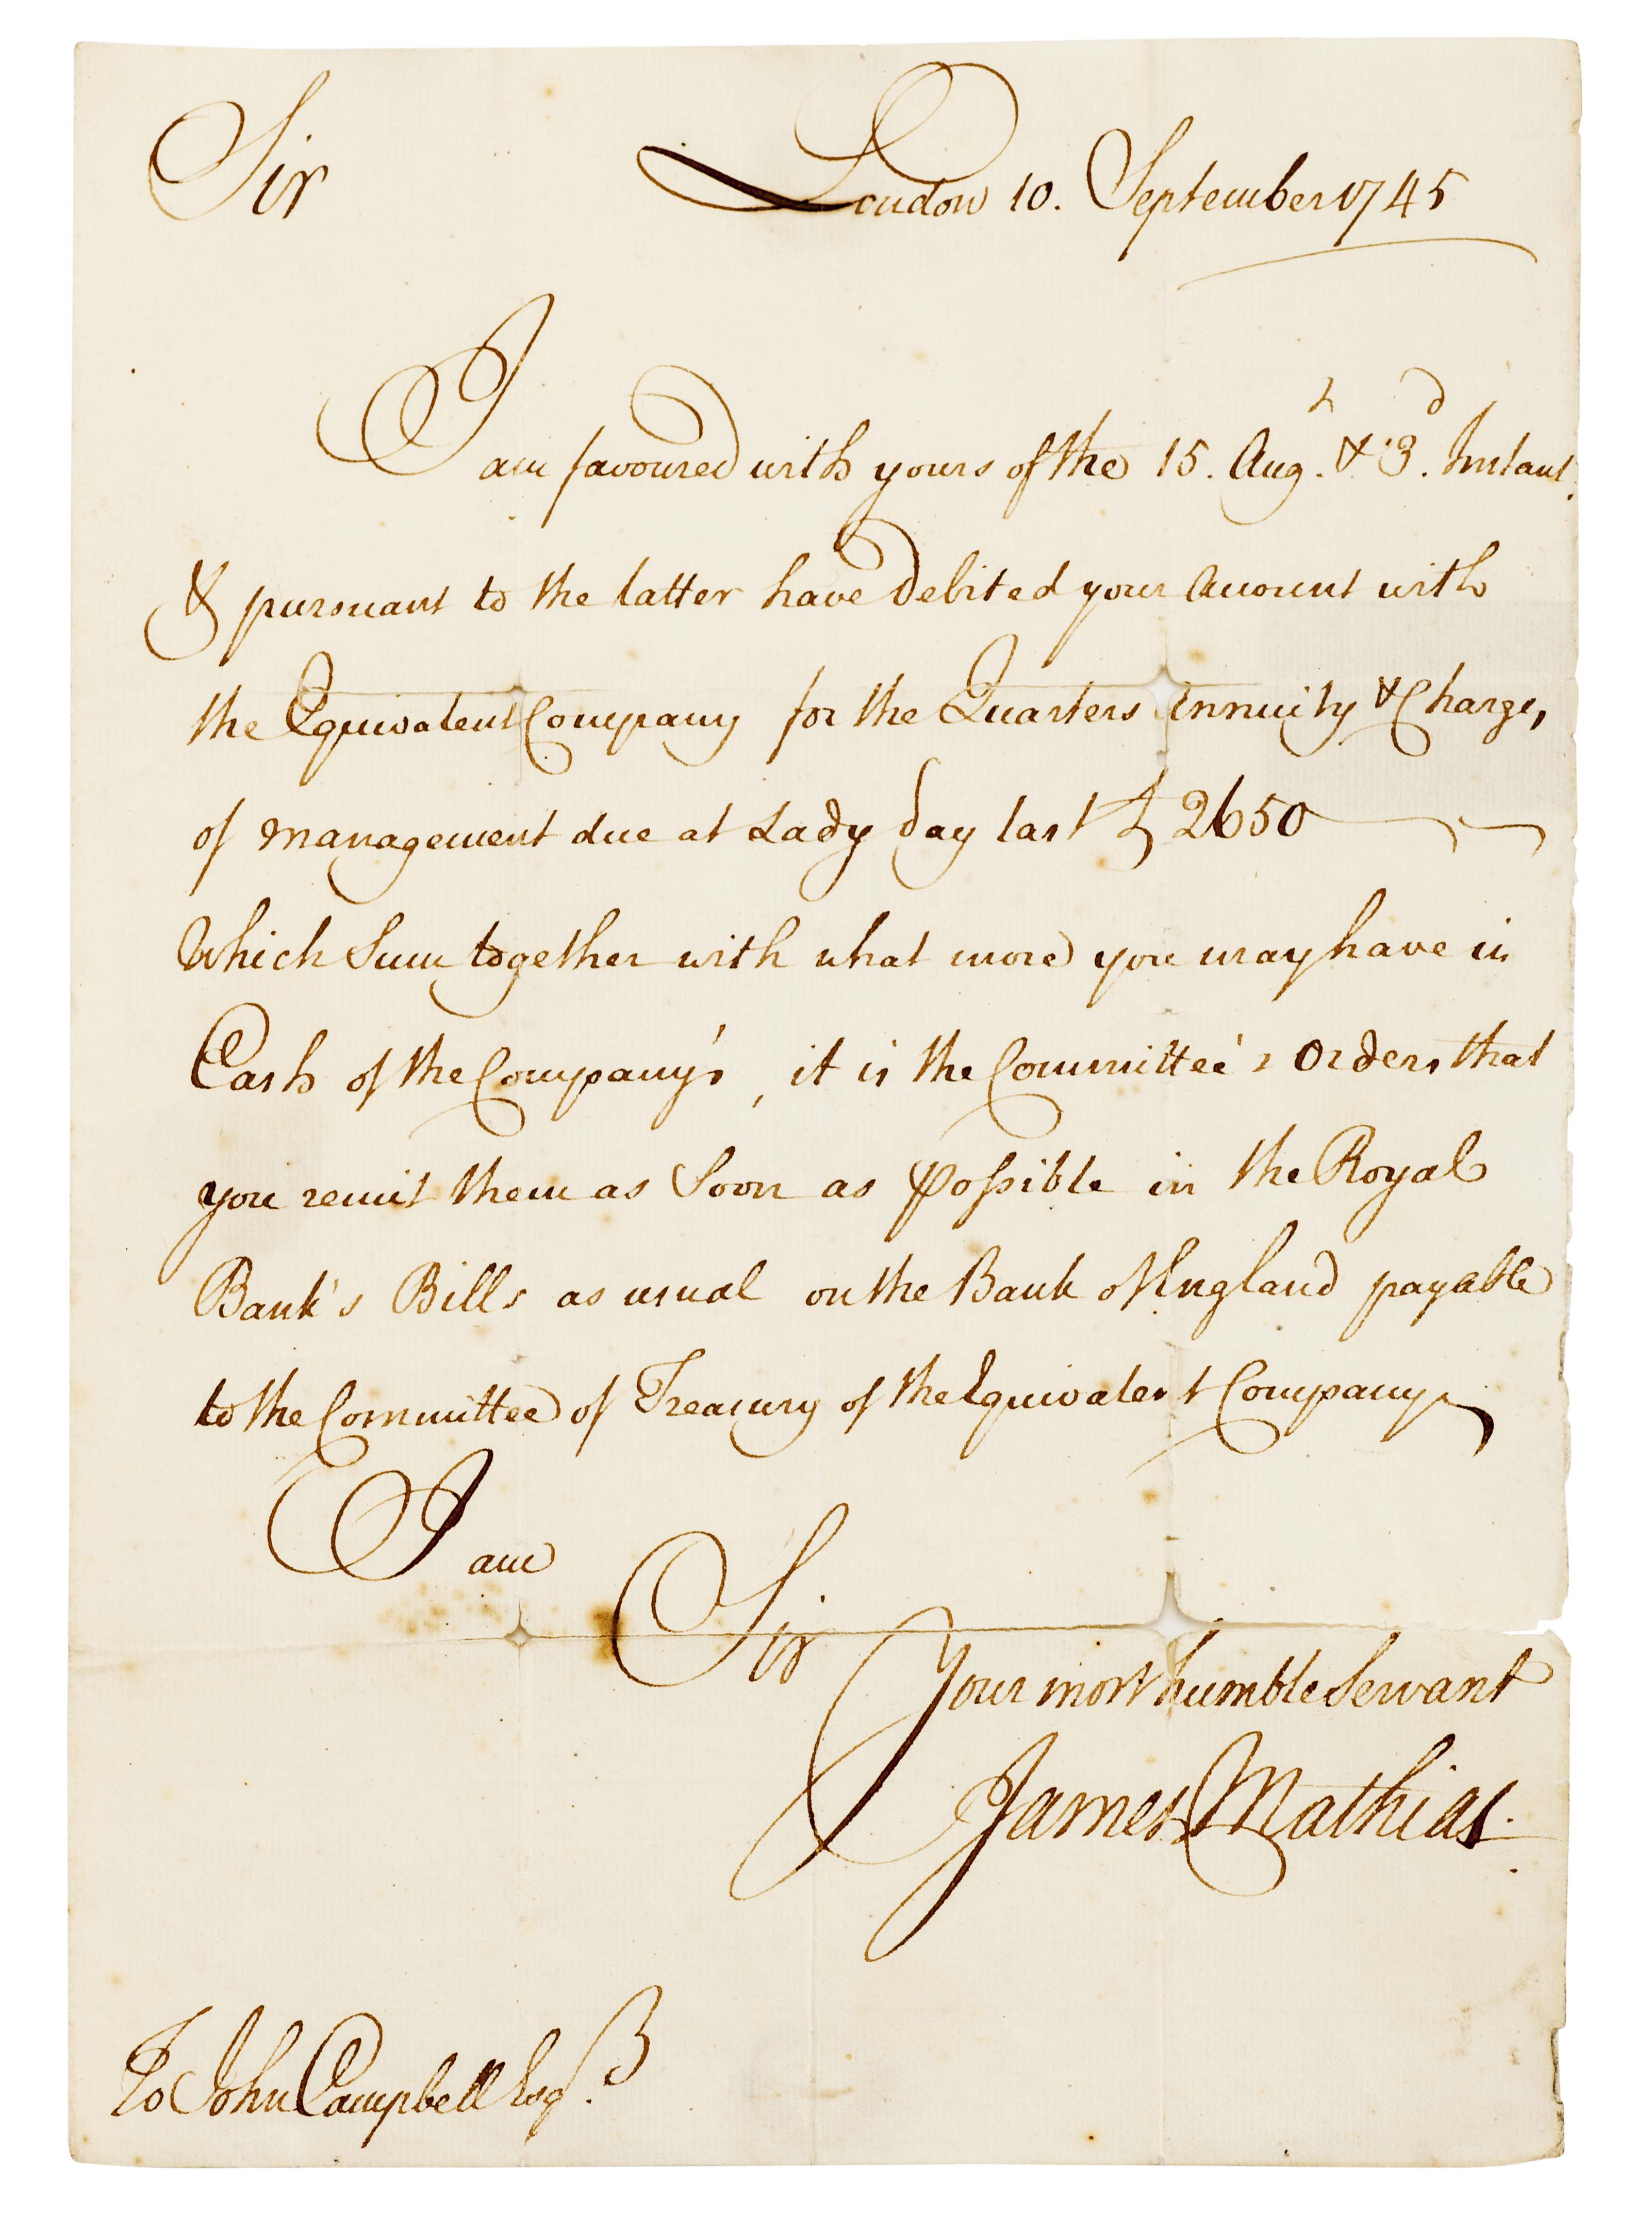 Sir
London 10. September 1745
I am favoured with yours of the 15. Aug.t & 3.d Instant.
& pursuant to the latter have Debited your Account with
the Equivalent Company for the Quarters Annuity & Charge,
of Management due at Lady day last £ 2650
Which Sum together with what more you may have in
Cash of the Company's, it is the Committee's Orders that
you remit them as Soon as Possible in the Royal
Bank's Bills as usual on the Bank of England payable
to the Committee of Treasury of the Equivalent Company
I am
Sir
Your most humble Servant
James Mathias.
To John Campbell Esq.r